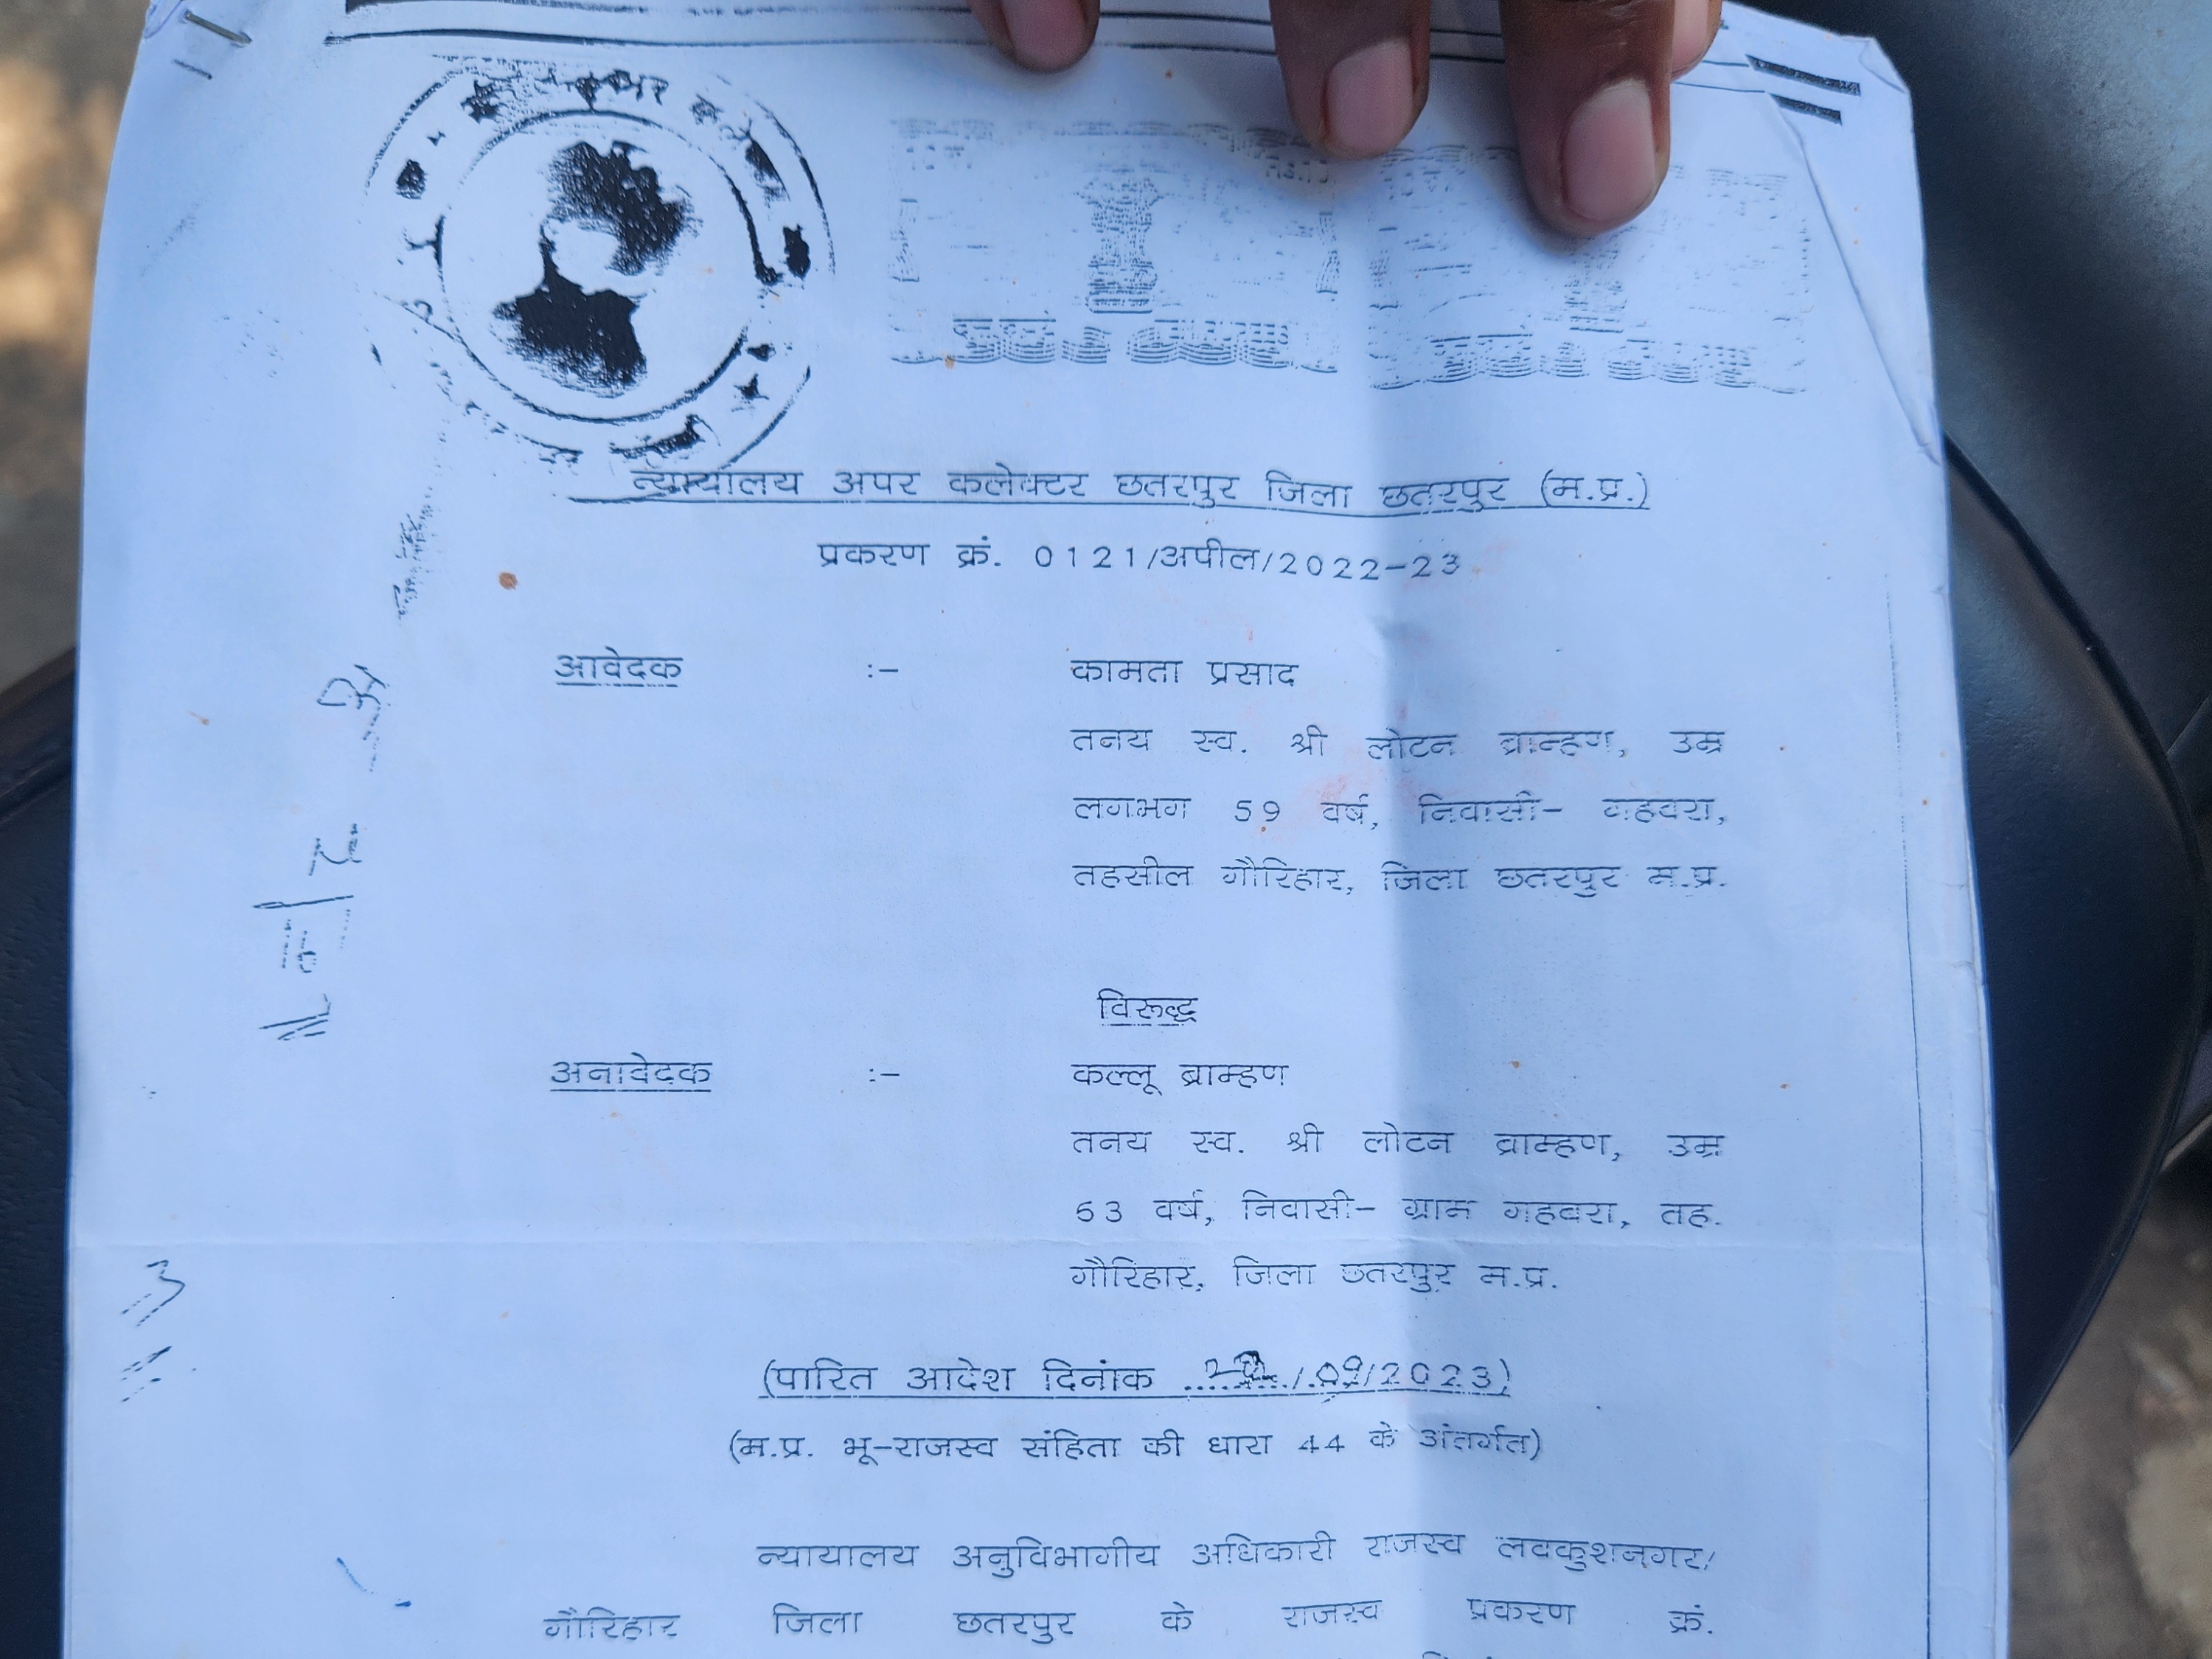 न्यायालय अपर कलेक्टर छतरपुर जिला छतरपुर (म.प्र.)
प्रकरण क्रं. 0121/अपील/2022-23
आवेदक :- कामता प्रसाद
तनय स्व. श्री लोटन ब्राम्हण, उम्र
लगभग 59 वर्ष, निवासी- गहवरा,
तहसील गौरिहार, जिला छतरपुर म.प्र.
विरूद्ध
अनावेदक :- कल्लू ब्राम्हण
तनय स्व. श्री लोटन ब्राम्हण, उम्र
53 वर्ष, निवासी- ग्राम गहवरा, तह.
गौरिहार, जिला छतरपुर म.प्र.
(पारित आदेश दिनांक ......./.09/2023)
(म.प्र. भू-राजस्व संहिता की धारा 44 के अंतर्गत)
न्यायालय अनुविभागीय अधिकारी राजस्व लवकुशनगर/
गौरिहार जिला छतरपुर के राजस्व प्रकरण क्रं.